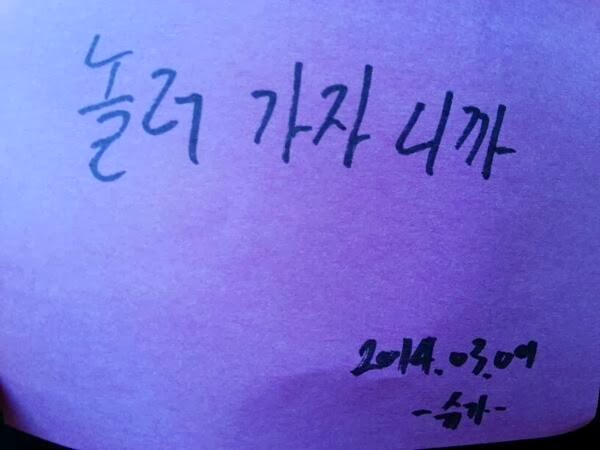 놀러 가자 니까
2014.03.09
-슈가-